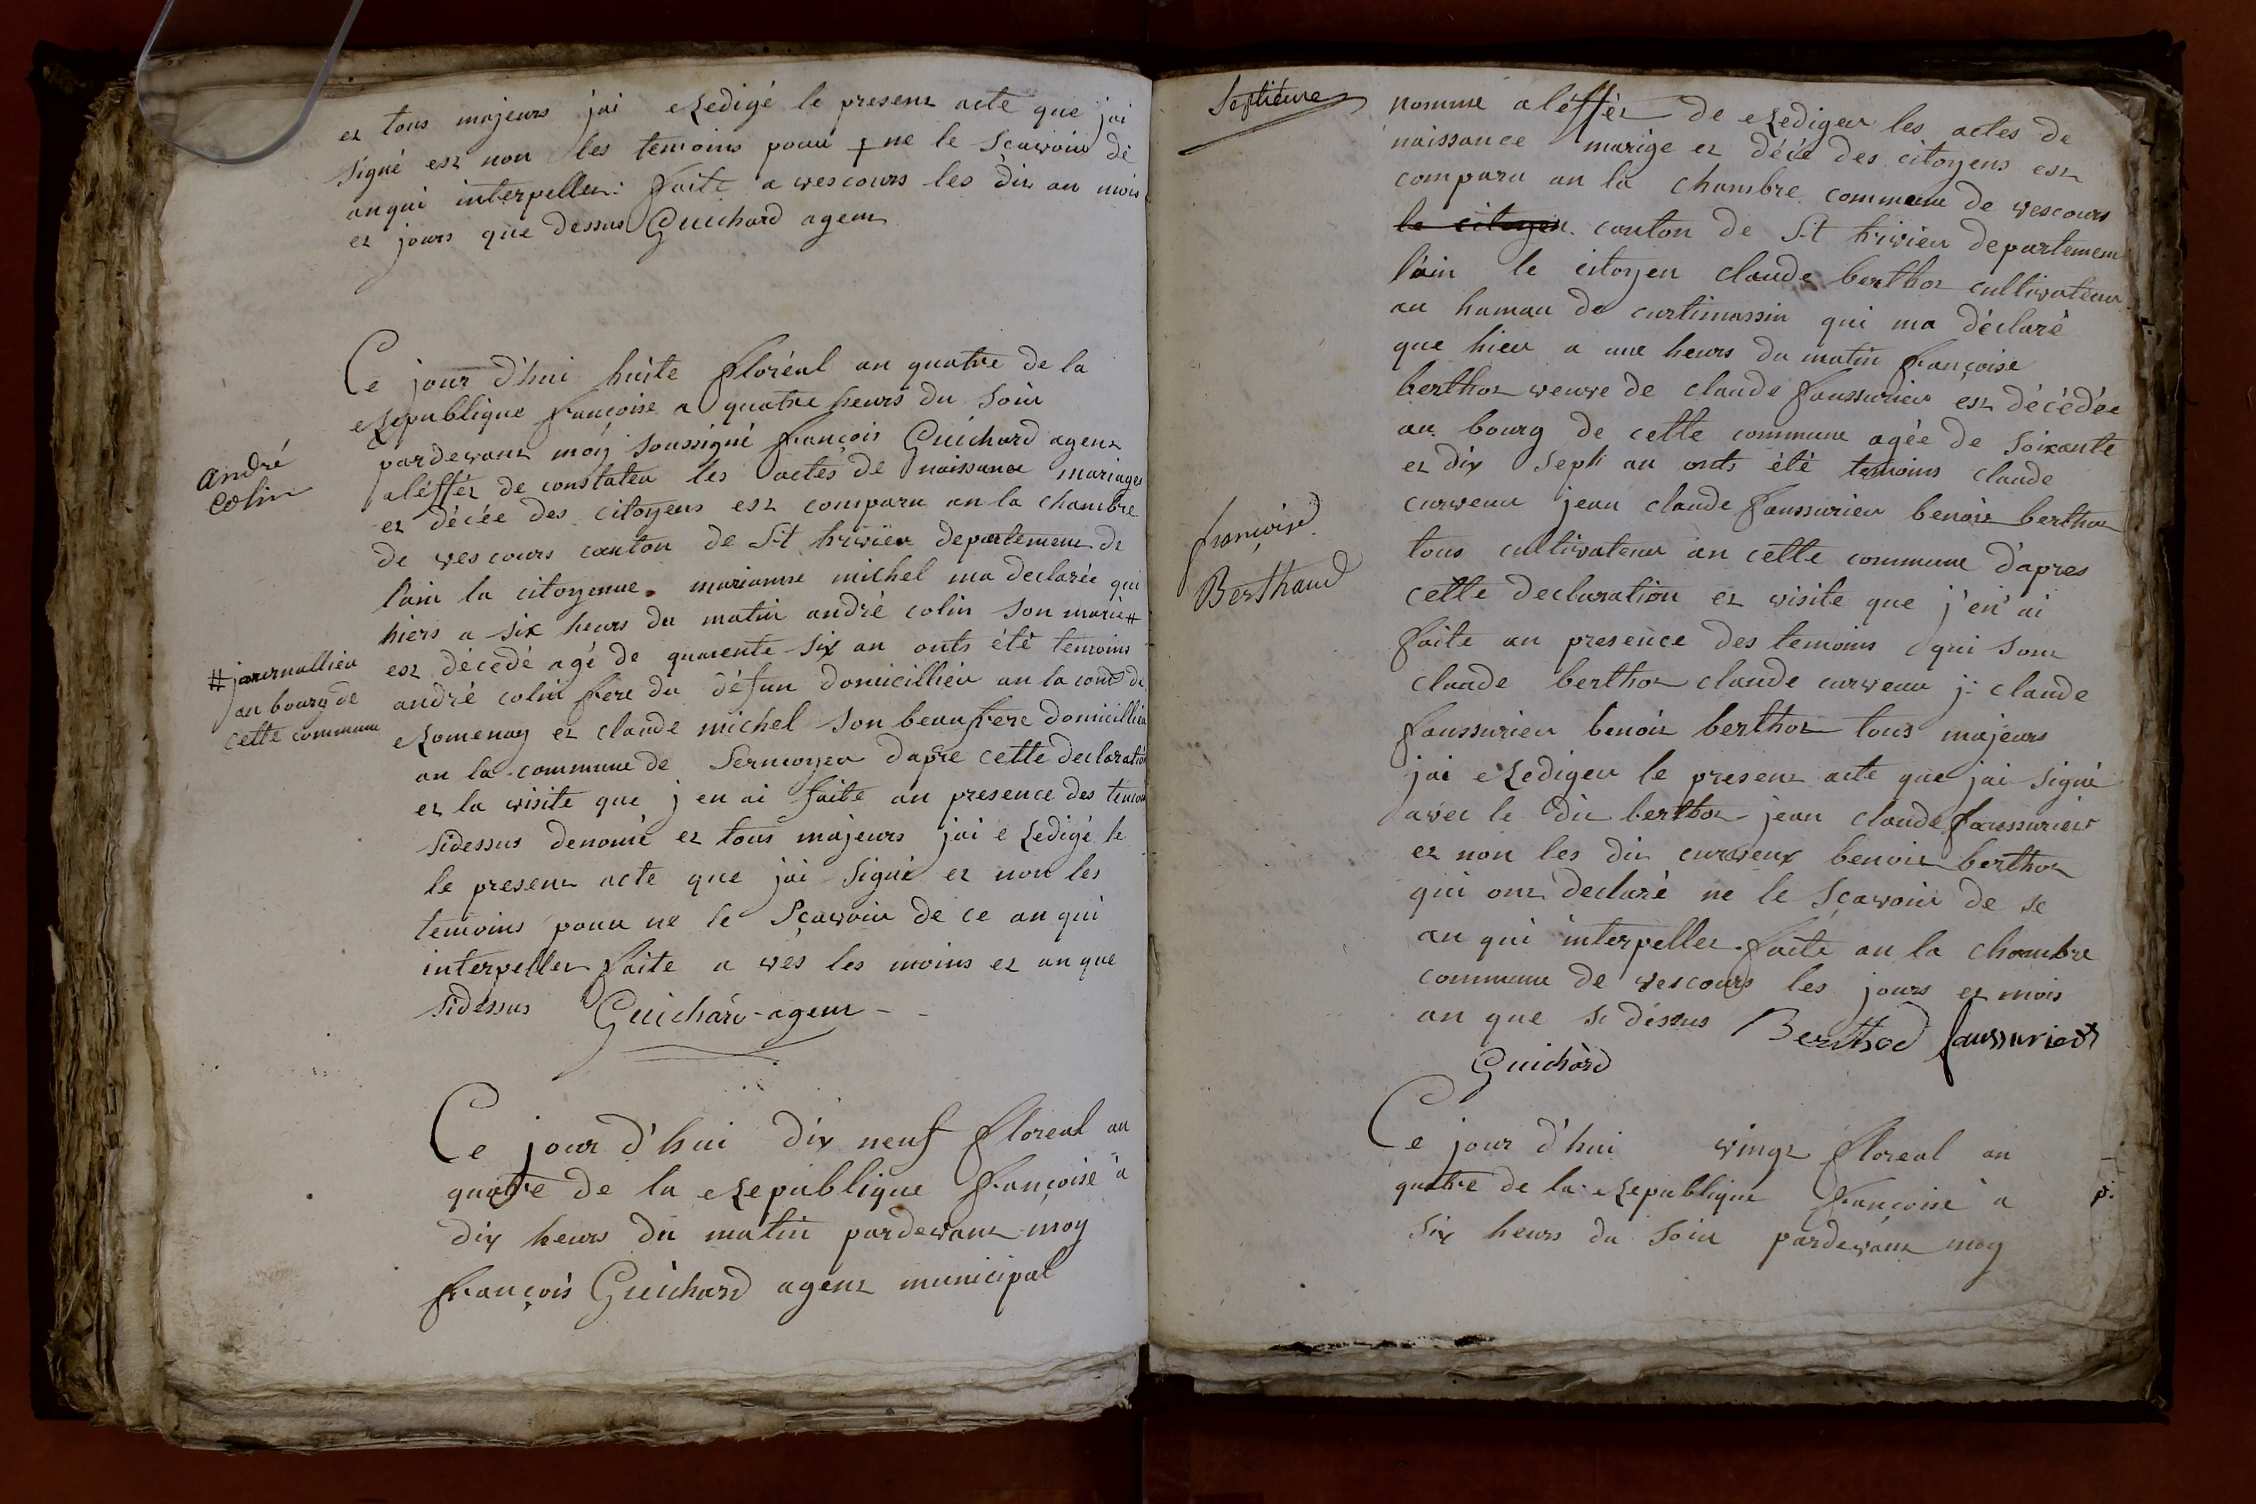 et tous majeurs jai redigé le present acte que jai
signé est non les temoins pour ne le scavoir de
anqui interpeller. faite a vescours les dit an mois
et jours que dessus Guichard agent
Ce jour d'hui huite floréal an quatre de la
republique françoise a quatre heurs du soir
pardevant moy soussigné françois Guichard agent
aléffét de constater les actes de naissance mariages
et décée des citoyens est comparu an la chambre
de vescours canton de St trivier departement de
l'ain la citoyenne marianne michel ma declarée qui
hiers a six heurs du matin andré colin son marie #
est décédé agé de quarente six an onts été temoins
andré colin frere du défun domicillier an la com de
romenay et claude michel son beau frere domicillier
an la commune de Sermoyer dapre cette declaration
et la visite que j en ai faite an presence des temoin
sidessus denomé et tous majeurs jai redigé le
le present acte que jai signé et non les
temoins pour ne le sçavoir de ce an qui
interpeller faite a ves les moins et an que
sidessus Guichard agent
andré
colin
# journallier
au bourg de
cette commune
Ce jour d'hui dix neuf floreal an
quatre de la republique françoise a
dix heurs du matin pardevant moy
françois Guichard agent municipal
Septieme
nomme aléffét de rediger les actes de
naissance marige et décée des citoyens est
comparu an la chambre commune de vescours
le citoyen canton de St trivier departement
l'ain le citoyen claude berthot cultivateur
au hamau de curtimassin qui ma déclaré
que hier a une heurs du matin françoise
berthot veuve de claude faussurier est décédée
au bourg de cette commune agée de soixante
et dix sept an onts été temoins claude
curveur jean claude faussurier benoit berthot
tous cultivateur an cette commune d'apres
cette declaration et visite que j'en ai
faite an presence des temoins qui sont
claude berthot claude curveur j. claude
faussurier benoit berthot tous majeurs
jai rediger le present acte que jai signé
avec le dit berthot jean claude faussurier
et non les dit curveux benoit berthot
qui ont declaré ne le sçavoir de se
an qui interpeller. faite an la chambre
commune de vescours les jours et mois
an que si déssus Berthod faussurier
Guichard
françoise
Berthaud
Ce jour d'hui vingt floreal an
quatre de la republique françoise a
six heurs du soir pardevant moy